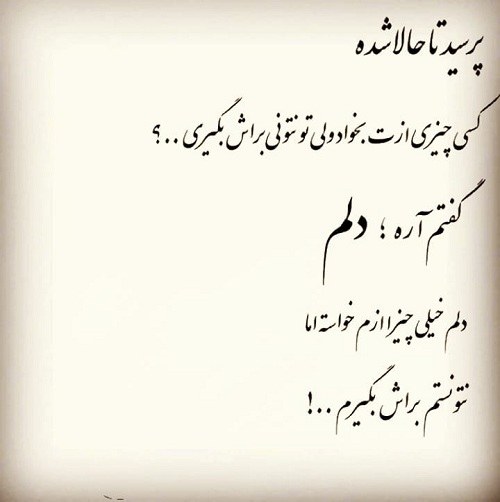 پرسید تا حالا شده
کسی چیزی ازت بخواد ولی تو نتونی براش بگیری ..؟
گفتم آره ؛ دلم
دلم خیلی چیزا ازم خواسته اما
نتونستم براش بگیرم ..!